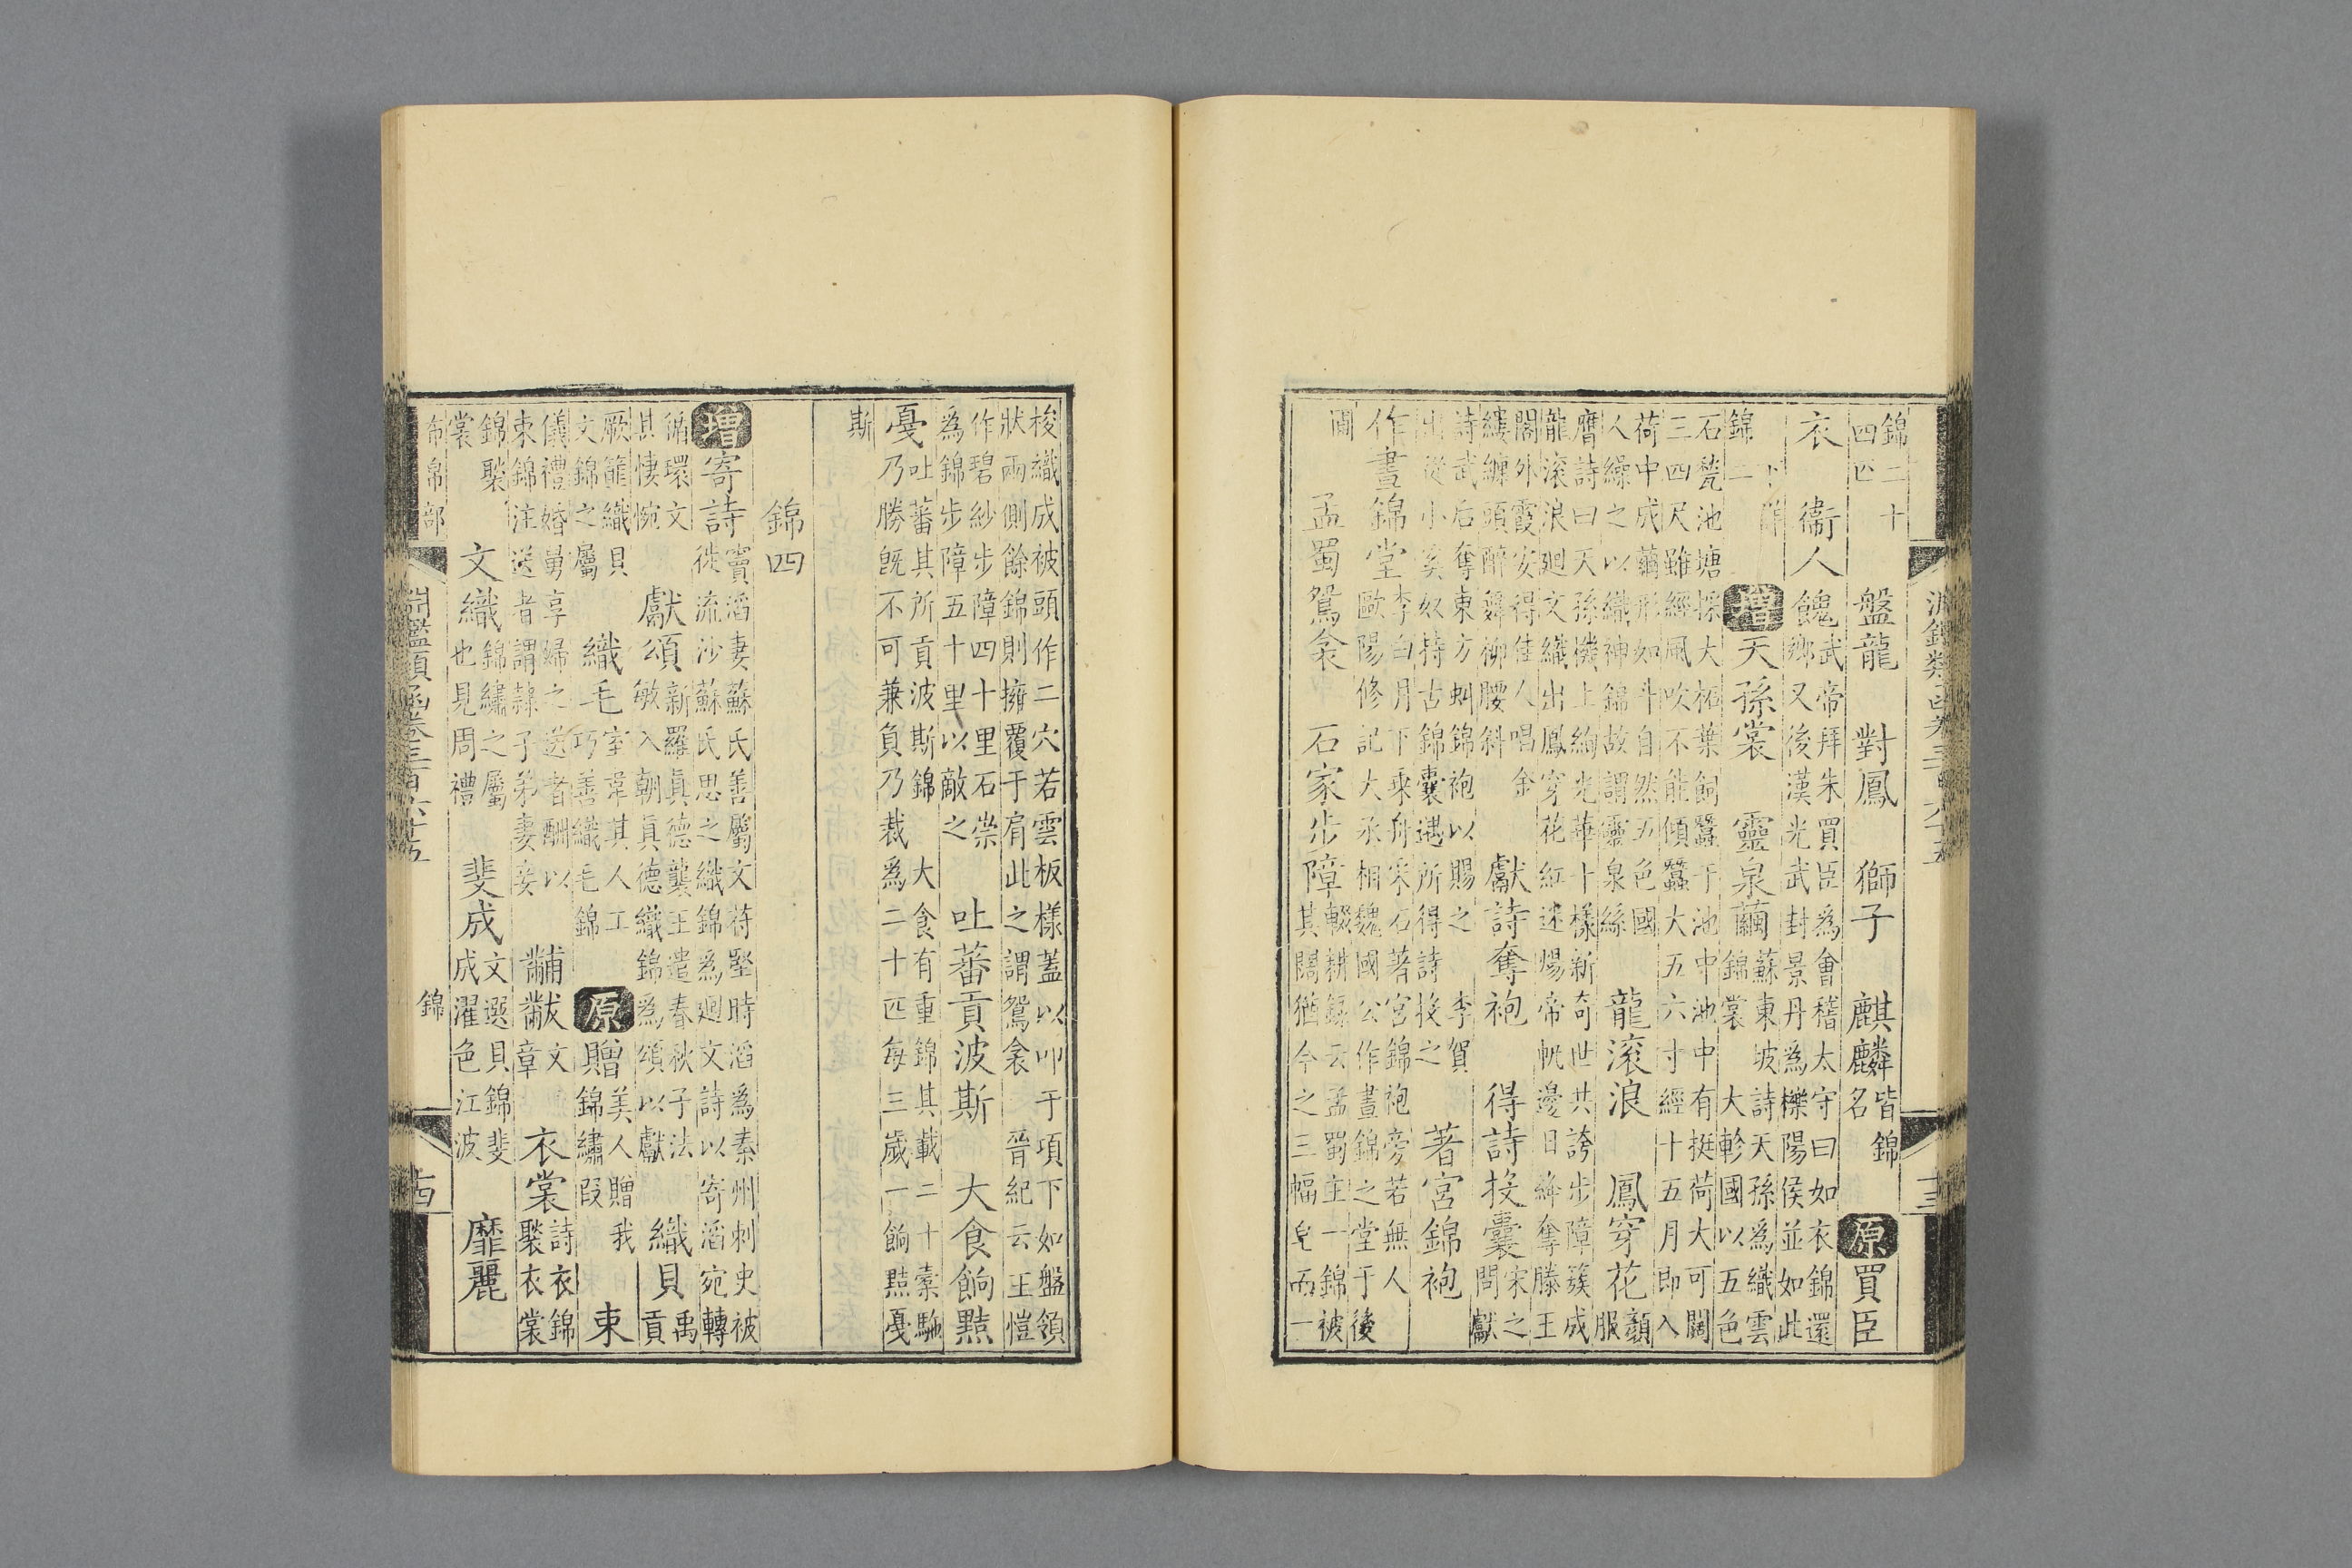 淵鑑類函卷三百六十五 十三
錦二十四匹 盤龍 對鳳 獅子 麒麟皆錦名 原買臣
衣 衞人餽武帝拜朱買臣為會稽太守曰如衣錦還鄉又後漢光武封景丹為櫟陽侯並如此
錦二 增天孫裳 靈泉繭蘇東坡詩天孫為織雲錦裳 大軫國以五色
石甃池塘採大柘葉飼蠶于池中池中有挺荷大可闊三四尺雖經風吹不能傾蠶大五六寸經十五月即入
荷中成繭形如斗自然五色國人繰之以織神錦故謂靈泉絲 龍滾浪 鳳穿花顏服
膺詩曰天孫機上絢光華十樣新奇世共誇步障簇成龍滾浪廻文織出鳳穿花紅迷煬帝帆邊日絳奪滕王
閣外霞安得佳人唱金縷纏頭醉舞柳腰斜 獻詩奪袍 得詩投囊宋之問獻
詩武后奪東方虬錦袍以賜之 李賀出從小奚奴持古錦囊遇所得詩投之 著宮錦袍
作晝錦堂李白月下乘舟采石著宮錦袍旁若無人 歐陽修記大丞相魏國公作晝錦之堂于後
圃 孟蜀鴛衾 石家步障輟耕錄云孟蜀主一錦被其闊猶今之三幅帛而一
梭織成被頭作二穴若雲板樣蓋以叩于項下如盤領狀兩側餘錦則擁覆于肩此之謂鴛衾 晉紀云王愷
作碧紗步障四十里石崇為錦步障五十里以敵之 吐蕃貢波斯 大食餉黠
戛吐蕃其所貢波斯錦 大食有重錦其載二十橐駞乃勝旣不可兼負乃裁爲二十匹每三歲一餉黠戛
斯
錦四
增寄詩竇滔妻蘇氏善屬文苻堅時滔爲秦州刺史被徙流沙蘇氏思之織錦爲廻文詩以寄滔宛轉
循環文其悽惋 獻頌新羅真德襲王遣春秋子法敏入朝真德織錦爲頌以獻 織貝禹貢
厥篚織貝文錦之屬 織毛室韋其人工巧善織毛錦 原贈美人贈我錦繡段 束
儀禮婚舅享歸之送者酬以束錦注送者謂隸子弟妻妾 黼黻文章 衣裳詩衣錦褧衣裳
錦褧裳 文織錦繡之屬也見周禮 斐成文選貝錦斐成濯色江波 靡麗
布帛部 淵鑑類函卷三百六十五 錦 十四